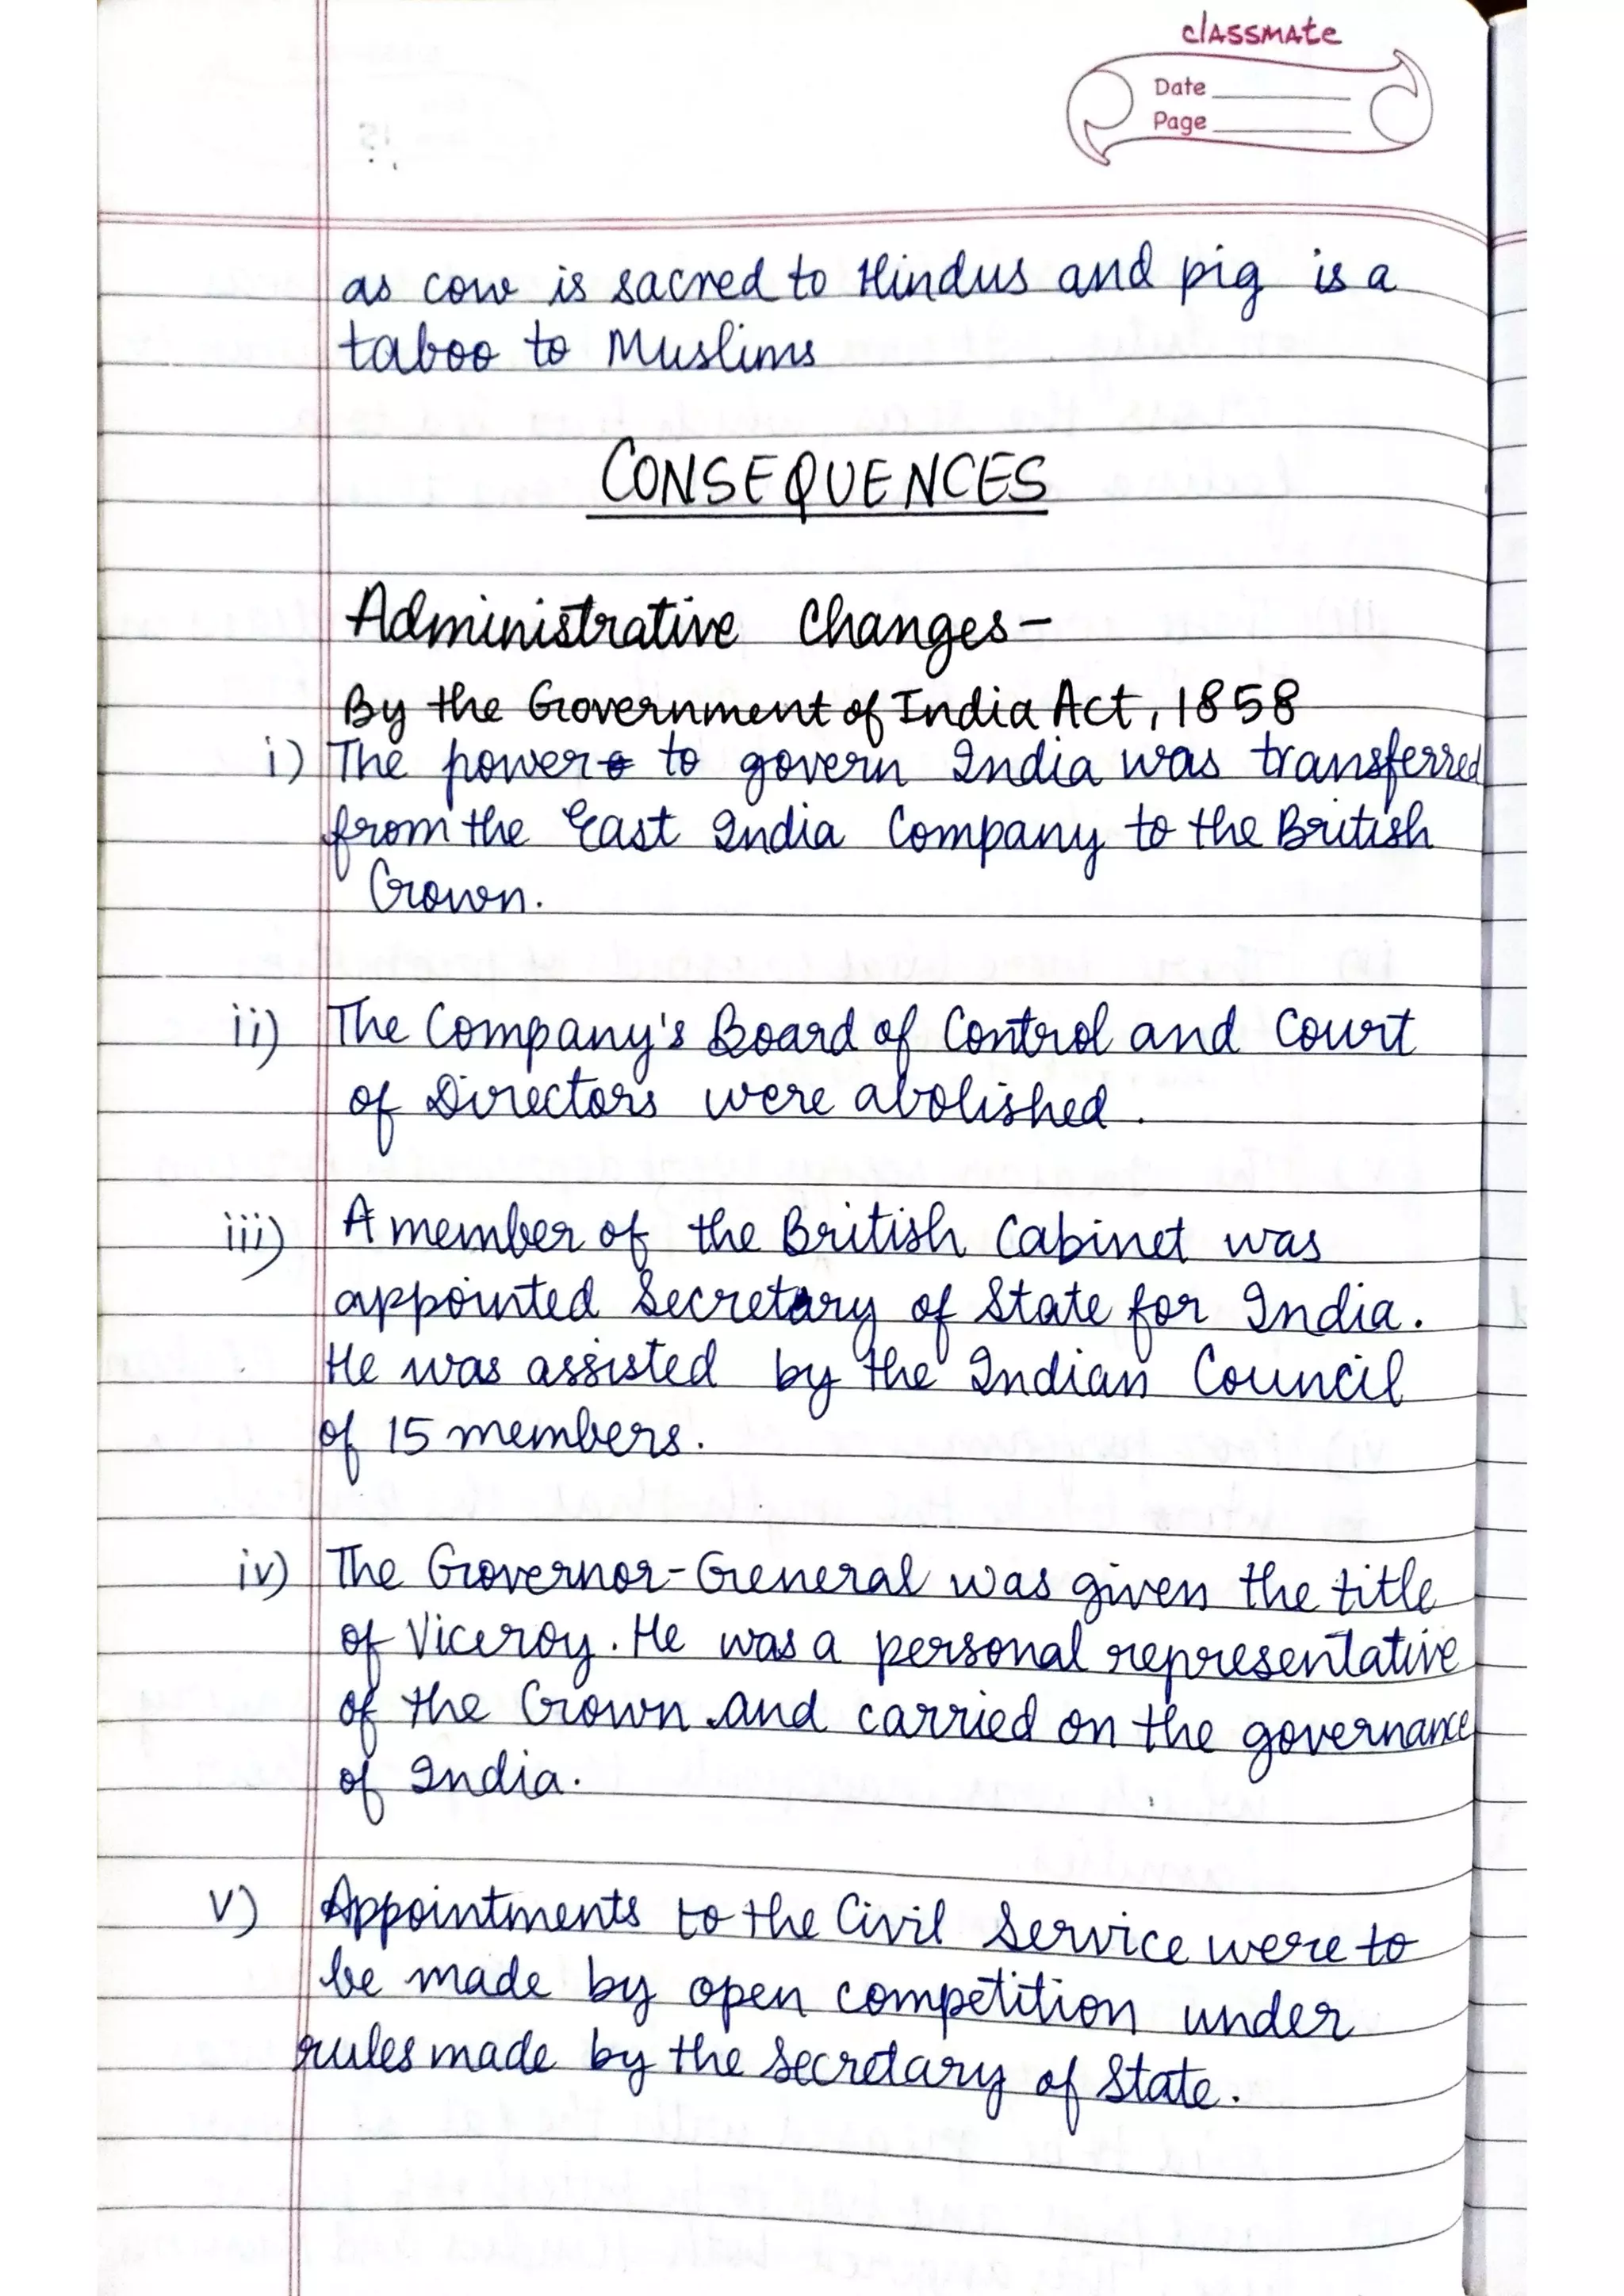 classmate
Date
Page
as cow is sacred to Hindus and pig is a
taboo to Muslims
CONSEQUENCES
Administrative Changes-
By the Government of India Act, 1858
i) The power to govern India was transferred
from the East India Company to the British
Crown.
ii) The Company's Board of Control and Court
of Directors were abolished.
iii) A member of the British Cabinet was
appointed Secretary of State for India.
He was assisted by the Indian Council
of 15 members.
iv) The Governor-General was given the title
of Viceroy. He was a personal representative
of the Crown and carried on the governance
of India.
v) Appointments to the Civil Service were to
be made by open competition under
rules made by the Secretary of State.